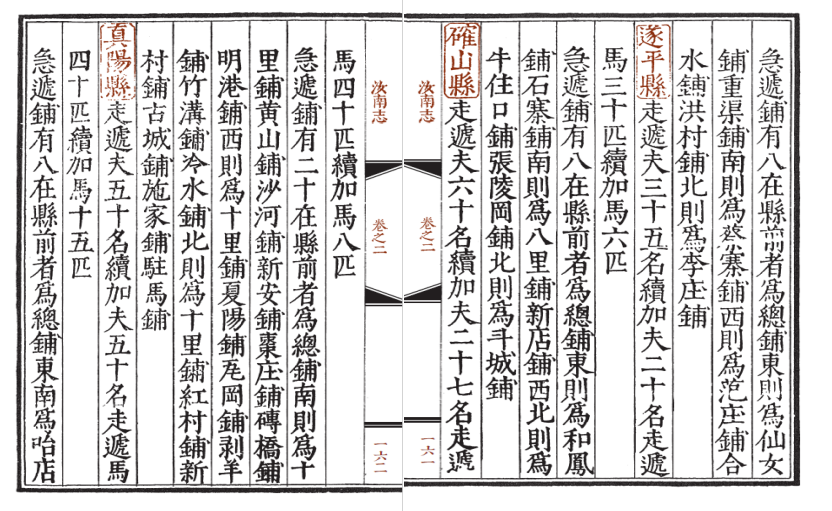 急遞鋪有八在縣前者爲總鋪東則爲仙女
鋪重渠鋪南則爲蔡寨鋪西則爲范庄鋪合
水鋪洪村鋪北則爲李庄鋪
遂平縣走遞夫三十五名續加夫二十名走遞
馬三十匹續加馬六匹
急遞鋪有八在縣前者爲總鋪東則爲和鳳
鋪石寨鋪南則爲八里鋪新店鋪西北則爲
牛住口鋪張陵岡鋪北則爲斗城鋪
確山縣走遞夫六十名續加夫二十七名走遞
汝南志 卷之二 一六一
汝南志 卷之二 一六二
馬四十匹續加馬八匹
急遞鋪有二十在縣前者爲總鋪南則爲十
里鋪黃山鋪沙河鋪新安鋪棗庄鋪磚橋鋪
明港鋪西則爲十里鋪夏陽鋪厇岡鋪剥羊
鋪竹溝鋪冷水鋪北則爲十里鋪紅村鋪新
村鋪古城鋪施家鋪駐馬鋪
真陽縣走遞夫五十名續加夫五十名走遞馬
四十匹續加馬十五匹
急遞鋪有八在縣前者爲總鋪東南爲哈店